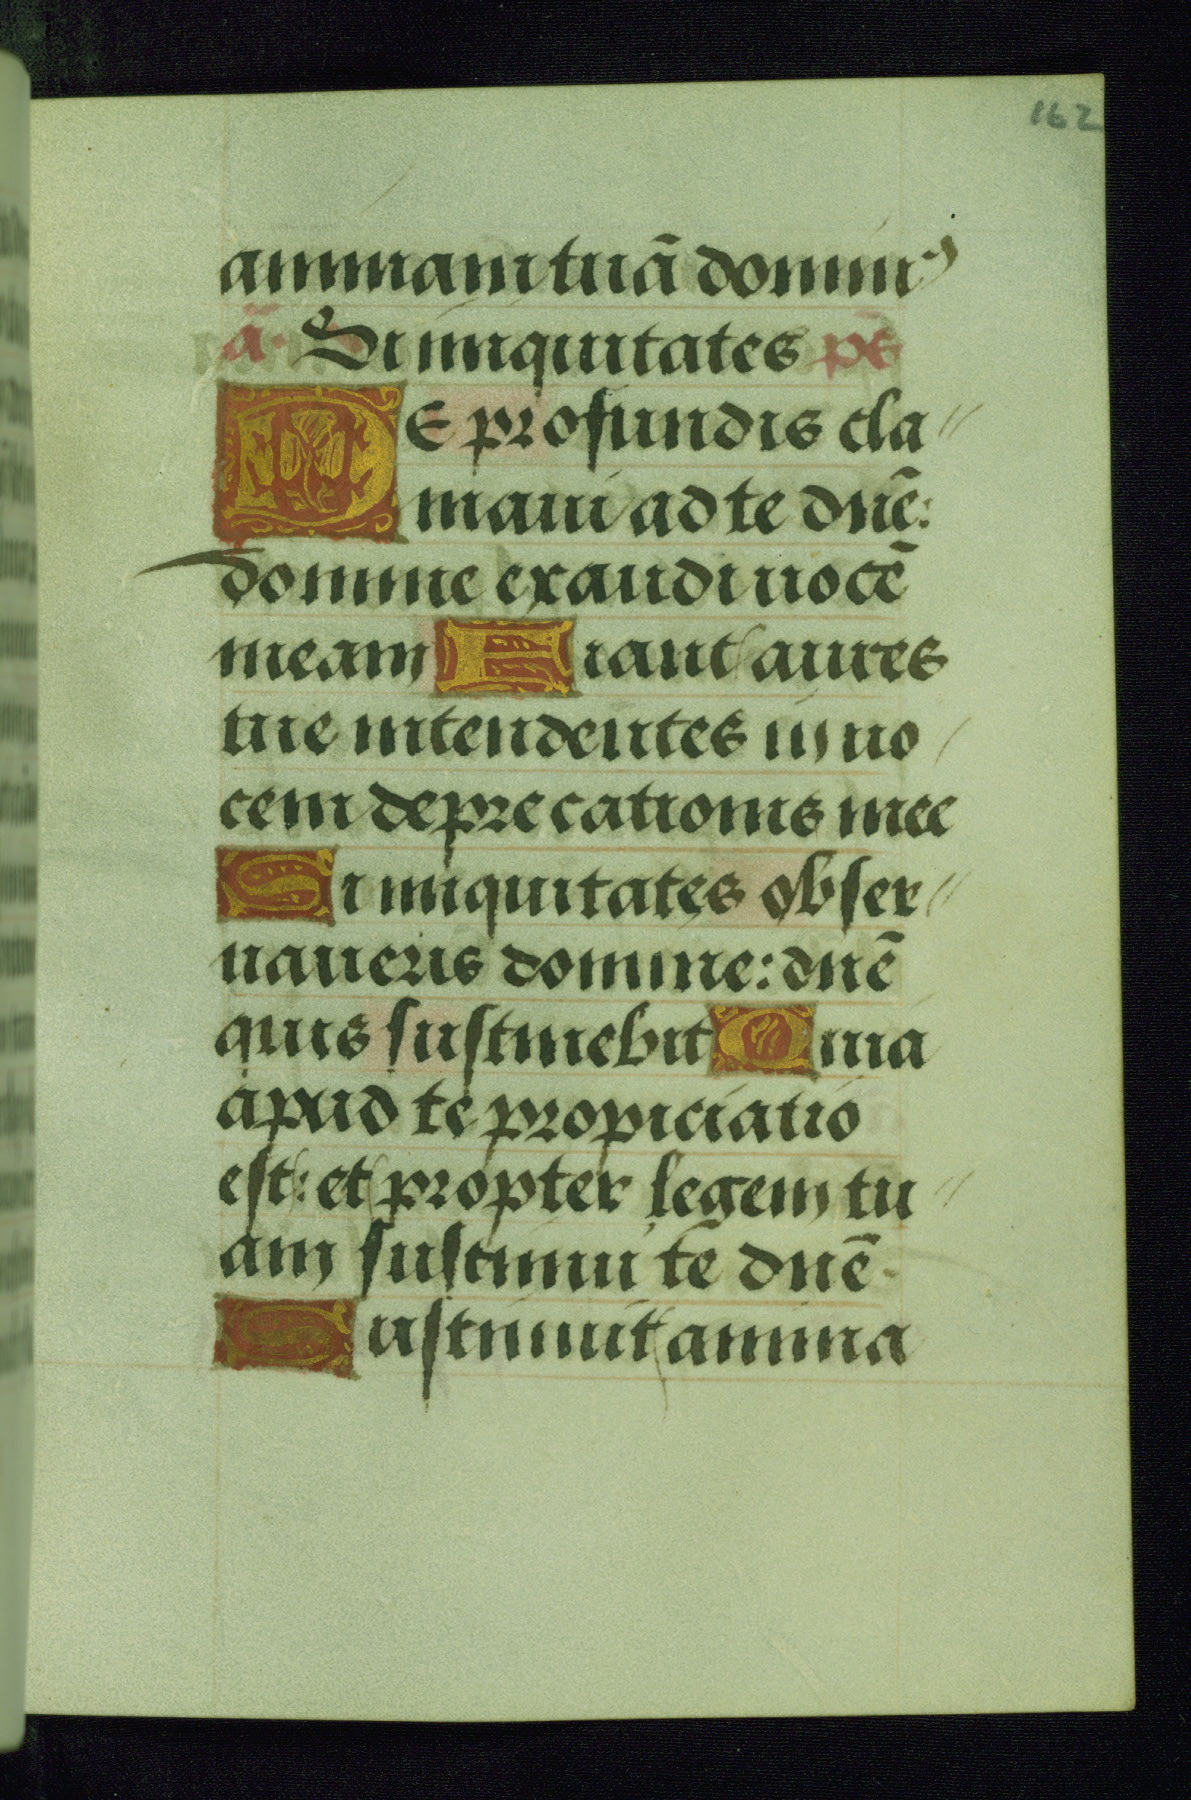 162
animam tuā domin⁹
ā. Si iniquitates ps̄
De profundis cla〃
maui ad te dn̄e:
domine exaudi uocē
meam Fiant aures
tue intendentes in uo/
cem deprecationis mee
Si iniquitates obser〃
uaueris domine: dn̄e
quis sustinebit Quia
apud te propiciatio
est: et propter legem tu〃
am sustinui te dn̄e.
Sustinuit anima